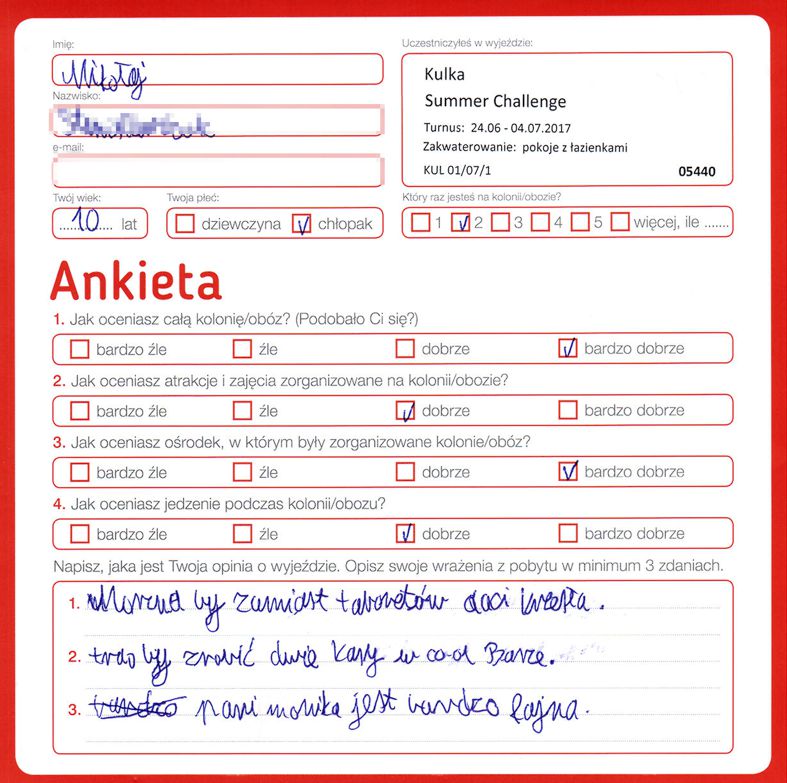 Imię:
Mikołaj
Nazwisko:
e-mail:
Twój wiek:
10 lat
Twoja płeć:
dziewczyna chłopak
Uczestniczyłeś w wyjeździe:
Kulka
Summer Challenge
Turnus: 24.06 - 04.07.2017
Zakwaterowanie: pokoje z łazienkami
KUL 01/07/1 05440
Który raz jesteś na kolonii/obozie?
1 2 3 4 5 więcej, ile .......
Ankieta
1. Jak oceniasz całą kolonię/obóz? (Podobało Ci się?)
bardzo źle źle dobrze bardzo dobrze
2. Jak oceniasz atrakcje i zajęcia zorganizowane na kolonii/obozie?
bardzo źle źle dobrze bardzo dobrze
3. Jak oceniasz ośrodek, w którym były zorganizowane kolonie/obóz?
bardzo źle źle dobrze bardzo dobrze
4. Jak oceniasz jedzenie podczas kolonii/obozu?
bardzo źle źle dobrze bardzo dobrze
Napisz, jaka jest Twoja opinia o wyjeździe. Opisz swoje wrażenia z pobytu w minimum 3 zdaniach.
1. by zamiast taboretów daci krzesła.
2. by zrobić dwie kasy w
3. pani monika jest bardzo fajna.